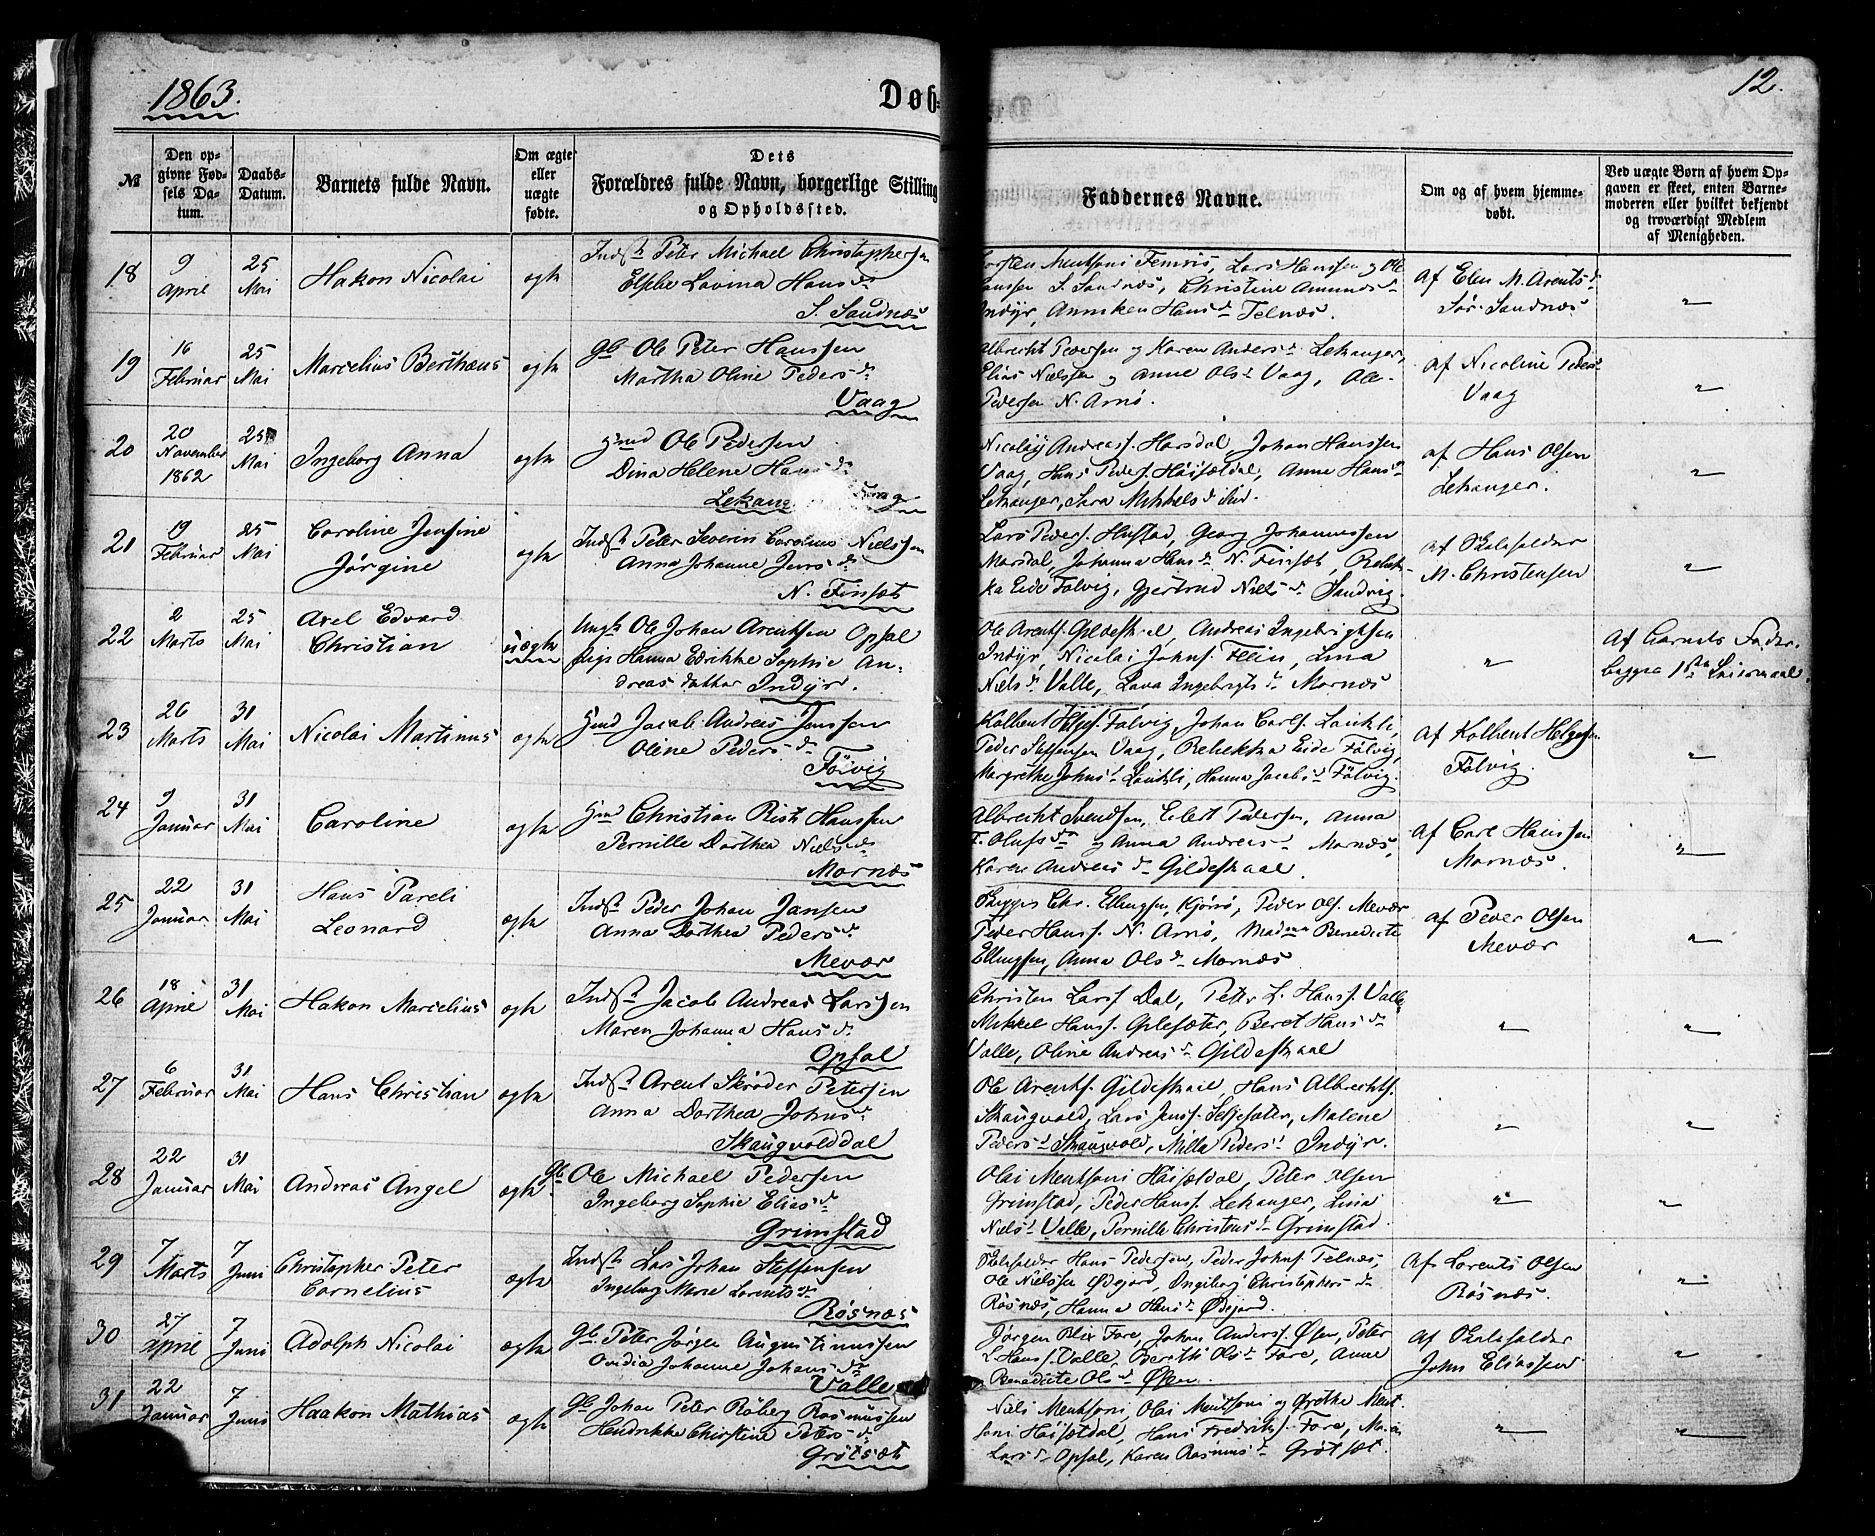 1863.
Døb-
12.
№
Den op-
givne Fød-
sels Da-
tum.
Daabs-
Datum.
Barnets fulde Navn.
Om ægte
eller
uægte
fødte.
Dets
Forældres fulde Navn, borgerlige Stilling
og Opholdssted.
Faddernes Navne.
Om og af hvem hjemme-
døbt.
Ved uægte Børn af hvem Op-
gaven er skeet, enten Barne-
moderen eller hvilket bekjendt
og troværdigt Medlem
af Menigheden.
18
9
April
25
Mai
Hakon Nicolai
ægte
Indst Peter Michael Christophersen
Elsebe Lovina Hansd.
S. Sandnæs
Mentsoni Femris, Lars Hanssen og Ole
S. Sandnæs, Christine Amundsd.
Indyr, Anniken Hansd. Telnæs.
af Elen M. Arentsd.
Sør-Sandnæs
"
19
16
Februar
25
Mai
Marcelius Berthæus
ægte
gb Ole Peter Hanssen
Martha Oline Pedersd.
Vaag
Albrecht Pedersen og Karen Andersd. Lekanger,
Elias Nielssen og Anne Olsd. Vaag, Ole
Pedersen N. Arnø.
af Nicoline Pedersd.
Vaag
"
20
20
November
1862
25
Mai
Ingeborg Anna
ægte
gmd Ole Pedersen
Dina Helene Hansd.
Lekang
Nicolay Andreas. Horsdal, Johan Hanssen
Vaag, Hans Peders. Høisætdal, Anne Hansd.
Lekanger, Sara Mikkelsd.
af Hans Olsen
Lekanger.
"
21
19
Februar
25
Mai
Caroline Jensine
Jørgine
ægte
Indst Peter Severin Carolius Nielssen
Anna Johanne Jensd.
N. Finsæt
Lars Peders. Hustad, Georg Johannessen
Morsdal, Johanna Hansd. N. Finsæt, Rebek-
ka Eide Følvig, Gjertrud Nielsd. Sandvig.
af Skoleholder
M. Christensen
"
22
2
Marts
25
Mai
Axel Edvard
Christian
uægte
Ungk Ole Johan Arentsen Opsal
Pige Hanna Edrikke Sophie An-
dreasdatter Indyr.
Ole Arents. Gildeskaal, Andreas Ingebrigtsen
Indyr, Nicolai Johns. Flein, Lina
Nielsd. Valle, Lava Ingebrigtsd. Mornæs
"
af Barnets Fader.
begges 1ste Leiermaal.
23
26
Marts
31
Mai
Nicolai Martinus
ægte
gmd Jacob Andreas Jenssen
Oline Pedersd.
Følvig
Kolbent Helges. Følvig, Johan Carls. Laukli,
Peder Steffensen Vaag, Rebekka Eide Følvig,
Margrethe Johnsd. Laukli, Hanna Jacobsd. Følvig.
af Kolbent Helgesen
Følvig.
"
24
9
Januar
31
Mai
Caroline
ægte
gm Christian Rist Hanssen
Pernille Dorthea Nielsd.
Mornæs
Albrecht Svendsen, Eilert Pedersen, Anna
F. Olufsd. og Anna Andreasd. Mornæs,
Karen Andreasd. Gildeskaal.
af Carl Hanssen
Mornæs.
"
25
22
Januar
31
Mai
Hans Pareli
Leonard
ægte
Indst Peder Johan Jansen
Anna Dorthea Pedersd.
Mevær
Chr. Ellingsen, Kjørsø, Peder Ols. Mevær
Peder Hanss. N. Arnø, Madame Benedicte
Ellingsen, Anna Olsd. Mornæs
af Peder Olsen
Mevær
"
26
18
April
31
Mai
Hakon Marcelius
ægte
Indst Jacob Andreas Larssen
Maren Johanna Hansd.
Opsal
Christen Larss. Dal, Peter L. Hanss. Valle,
Mikkel Hanss. Gilesæter, Beret Hansd.
Valle, Oline Andreasd. Gildeskaal
"
"
27
6
Februar
31
Mai
Hans Christian
ægte
Indst Arent Skrøder Petersen
Anna Dorthea Johnsd.
Skaugvolddal
Ole Arents. Gildeskaal, Hans Albrechts.
Skaugvold, Lars Jenss. Seljesæter, Malene
Pedersd. Skaugvold, Milla Pedersd. Indyr.
"
"
28
22
Januar
31
Mai
Andreas Angel
ægte
gb. Ole Michael Pedersen
Ingeborg Sophie Eliasd.
Grimstad
Olai Mentsoni Høisætdal, Peter Olsen
Grimstad, Peder Hanss. Lekanger, Lina
Nielsd. Valle, Pernille Christensd. Grimstad.
"
"
29
7
Marts
7
Juni
Christopher Peter
Cornelius
ægte
Indst Lars Johan Steffensen
Ingeborg Marie Lorentsd.
Røsnæs
Skoleholder Hans Pedersen, Peder Johns. Telnæs,
Ole Nielssen Ødegård, Ingeborg Christophersd.
Røsnæs, Hanna Hansd. Ødegård.
af Lorents Olsen
Røsnæs.
"
30
27
April
7
Juni
Adolph Nicolai
ægte
gb. Peter Jørgen Augustinussen
Ovidia Johanne Johansd.
Valle
Jørgen Blix Fore, Johan Anderss. Øsen, Peter
L. Hanss. Valle, Berith Olsd. Fore, Anne
Benedicte Olsd. Øsen.
af Skoleholder
John Eliassen
"
31
22
Januar
7
Juni
Haakon Mathias
ægte
gb. Johan Peter Røberg Rasmussen
Hendrikke Christine Petersd.
Grøtsæt
Niels Mentsoni, Olai Mentsoni og Grethe Ment-
soni Høisætdal, Hans Fredriks. Fore, Maria
Larsd. Opsal, Karen Rasmusd. Grøtsæt.
"
"